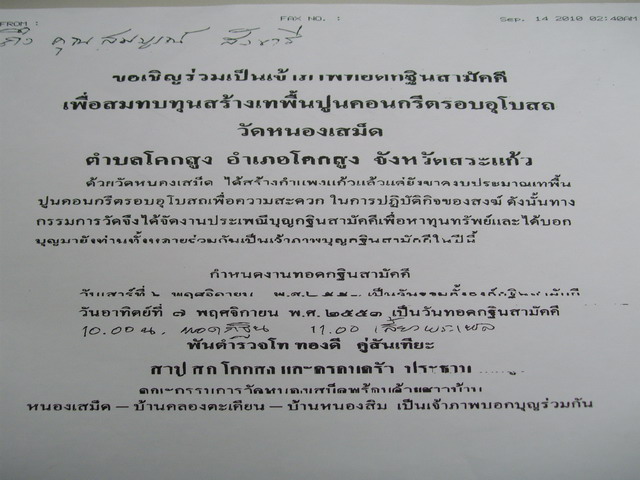 FROM : FAX NO. : Sep. 14 2010 02:40AM
ถึง คุณ สมบูรณ์
ขอเชิญร่วมเป็นเจ้าภาพทอดกฐินสามัคคี
เพื่อสมทบทุนสร้างเทพื้นปูนคอนกรีตรอบอุโบสถ
วัดหนองเสม็ด
ตำบลโคกสูง อำเภอโคกสูง จังหวัดสระแก้ว
ด้วยวัดหนองเสม็ด ได้สร้างกำแพงแก้วแล้วแต่ยังขาดงบประมาณเทพื้น
ปูนคอนกรีตรอบอุโบสถเพื่อความสะดวก ในการปฏิบัติกิจของสงฆ์ ดังนั้นทาง
กรรมการวัดจึงได้จัดงานประเพณีบุญกฐินสามัคคีเพื่อหาทุนทรัพย์และได้บอก
บุญมายังท่านทั้งหลายร่วมกันเป็นเจ้าภาพบุญกฐินสามัคคีในปีนี้
กำหนดงานทอดกฐินสามัคคี
วันเสาร์ที่ ๖ พฤศจิกายน พ.ศ.๒๕๕๓ เป็นวันรวมตั้งองค์กฐินสามัคคี
วันอาทิตย์ที่ ๗ พฤศจิกายน พ.ศ.๒๕๕๓ เป็นวันทอดกฐินสามัคคี
10.00 น. ทอดกฐิน 11.00 เลี้ยงพระเพล
พันตำรวจโท ทองดี คู่สันเทียะ
สวป สภ โคกสูง และครอบครัว ประธาน
คณะกรรมการวัดหนองเสม็ดพร้อมด้วยชาวบ้าน
หนองเสม็ด – บ้านคลองตะเคียน – บ้านหนองสิม เป็นเจ้าภาพบอกบุญร่วมกัน